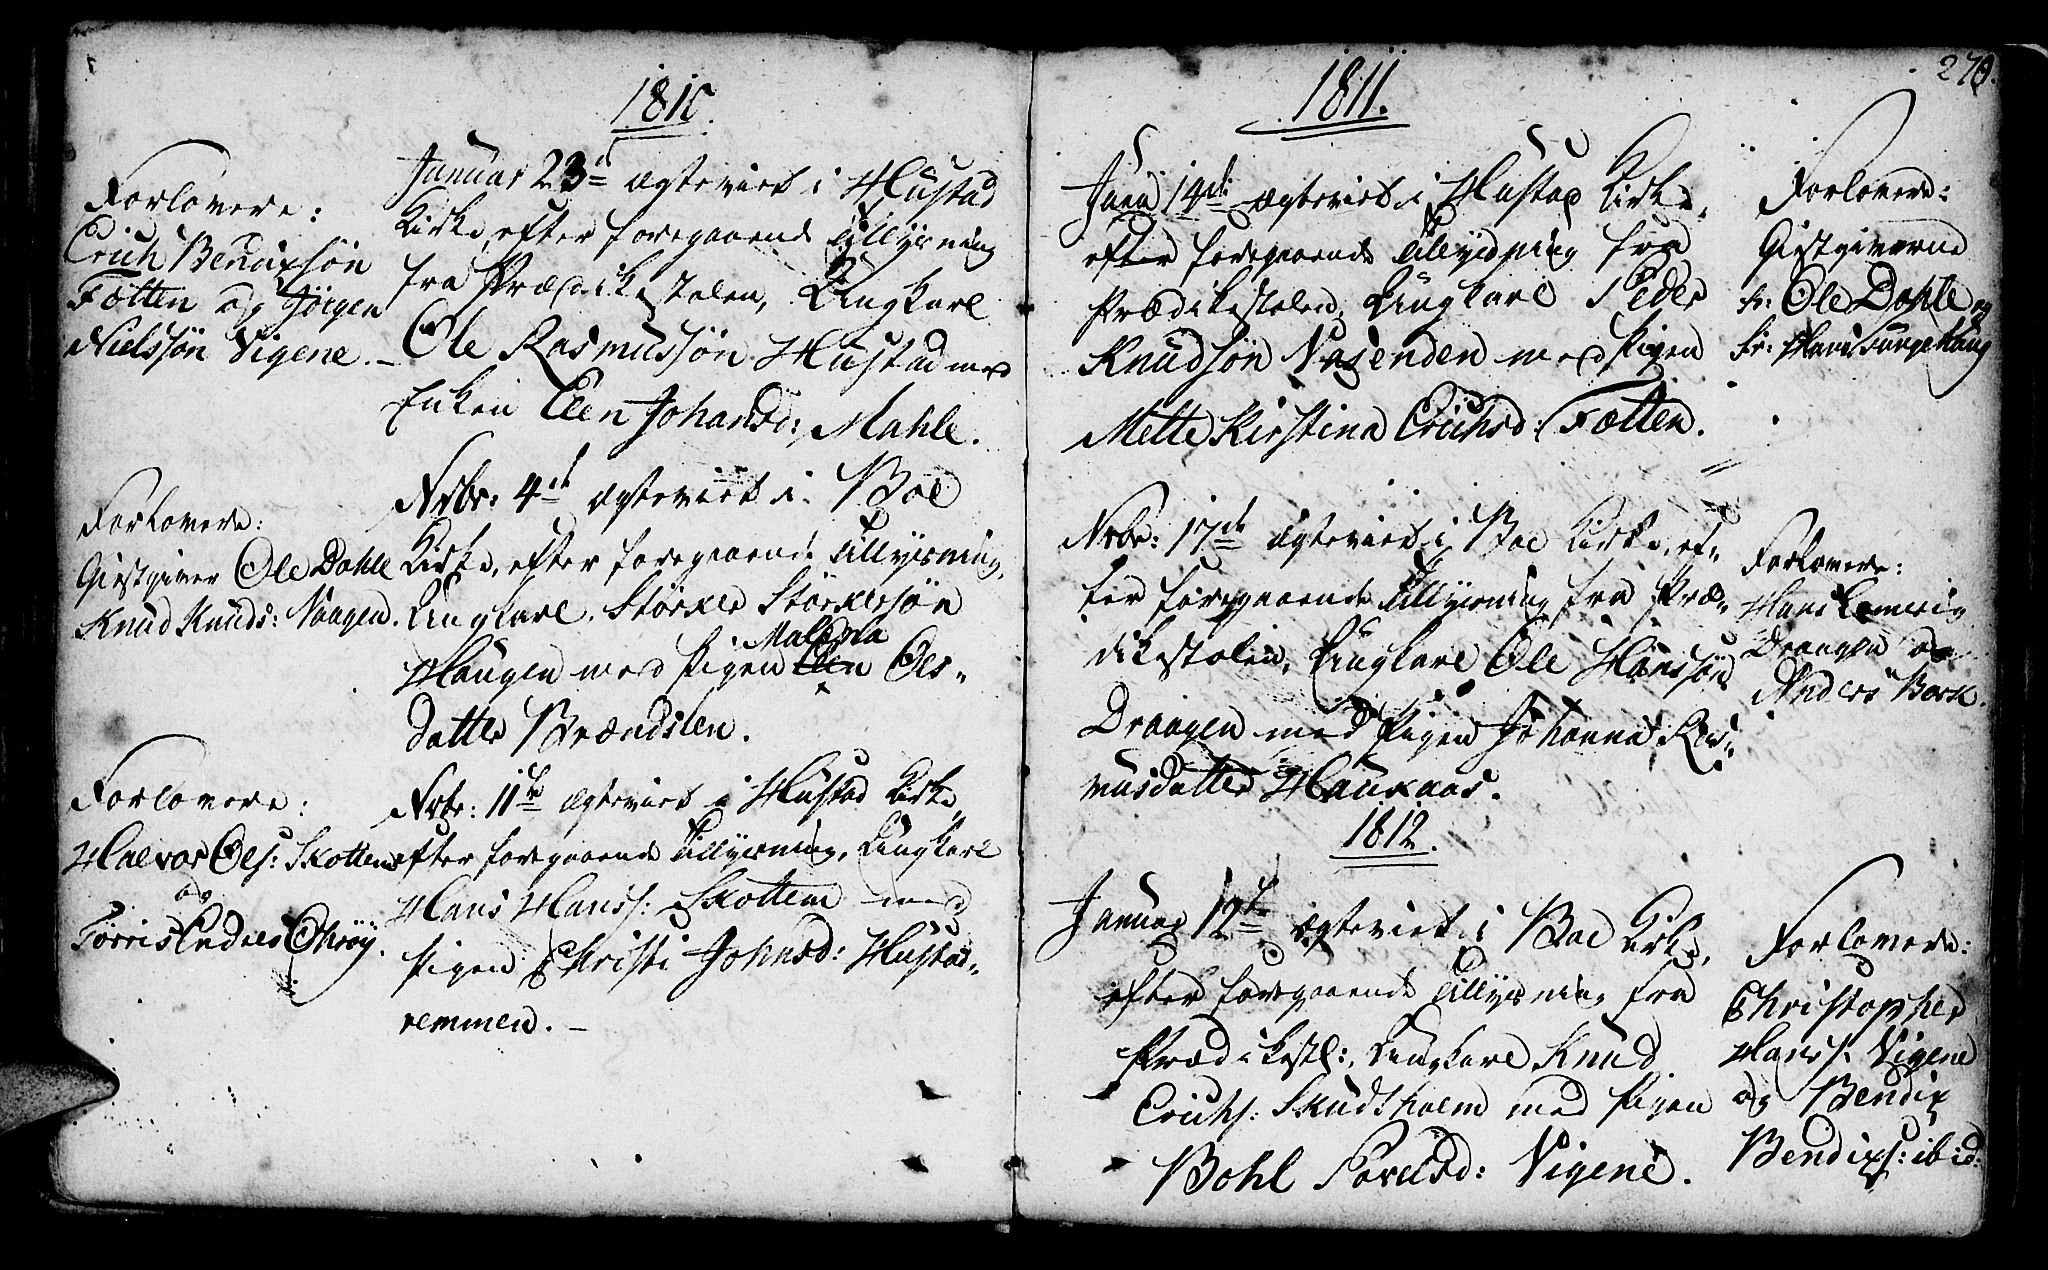 1810.
Forlovere:
Erich Bendixsøn
Fætten og Jørgen
Nielssøn Vigene.
Januar 23d ægteviet i Hustad
Kirke, efter foregaaende Tillysning
fra Prædikestolen, Ungkarl
Ole Rasmussøn Hustad med
Enken Elen Johansd: Mahle.
Forlovere:
Giestgiver Ole Dahle
Knud Knuds: Vaagen.
Nvbr: 4de ægteviet i Boe
Kirke, efter foregaaende Tillysning,
Ungkarl Størker Størkersøn
Malena
Haugen med Pigen Elen Oles-
datter Brændslen.
Forlovere:
Halvor Ols: Skottem
og
Tørris Endres Othrøy.
Nvbr: 11te ægteviet i Hustad Kirke
efter foregaaende Tillysning, Ungkarl
Hans Hanss: Skottem med
Pigen Christi Johnsd: Hustad-
remmen. –
270.
1811.
Juni 14de ægteviet i Hustad Kirke,
efter foregaaende Tillysning fra
Prædikestolen, Ungkarl Peder
Knudsøn Nasenden med Pigen
Mette Kirstina Erichsd: Fætten.
Forlovere:
Giestgiverne
Hr: Ole Dahle og
Hr: Hans Bunge Haug
Nvbr: 17de ægteviet i Boe Kirke, ef-
ter foregaaende Tillysning fra Præ-
dikestolen, Ungkarl Ole Hanssøn
Draagen med Pigen Johanna Ras-
musdatter Haukaas.
Forlovere:
Hans
Draagen og
Anders Bork.
1812.
Januar 12te ægteviet i Boe Kirke,
efter foregaaende Tillysning fra
Prædikestl:, Ungkarl Knud
Erichs: Skudsholm med Pigen
Bohl Povelsd: Vigene.
Forlovere:
Christopher
Hanss: Vigene
og Bendix
Bendixs: ibid: